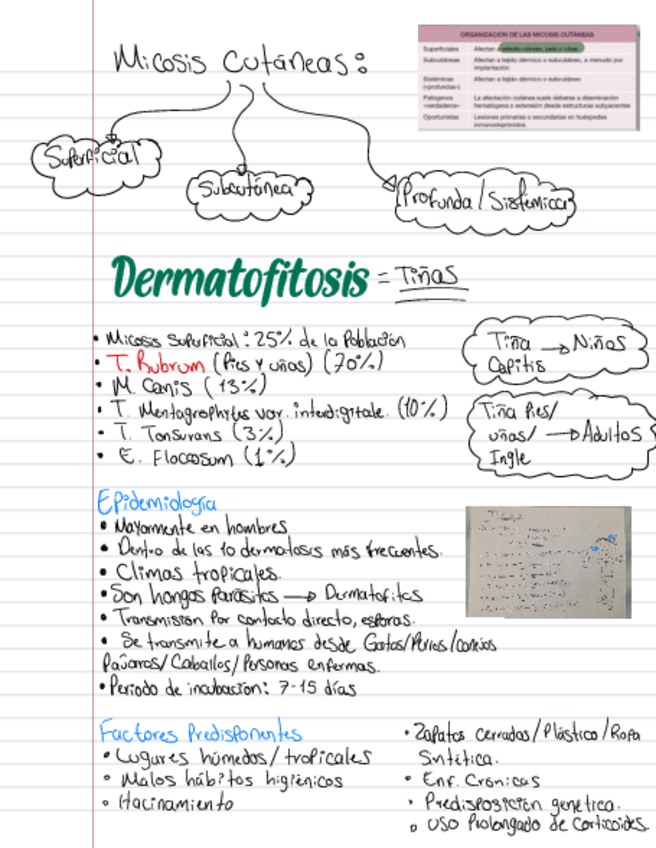 Micosis Cutáneas:
ORGANIZACIÓN DE LAS MICOSIS CUTÁNEAS
Superficiales Afectan a estrato córneo, pelo o uñas
Subcutáneas Afectan a tejido dérmico o subcutáneo, a menudo por
implantación
Sistémicas Afectan a tejido dérmico o subcutáneo
(«profundas»)
Patógenos La afectación cutánea suele deberse a diseminación
«verdaderos» hematógena o extensión desde estructuras subyacentes
Oportunistas Lesiones primarias o secundarias en huéspedes
inmunodeprimidos
Superficial
Subcutánea
Profunda/Sistémica
Dermatofitosis = Tiñas
• Micosis Superficial: 25% de la Población
• T. Rubrum (Pies y uñas) (70%)
• M. Canis (13%)
• T. Mentagrophytes var. interdigitale. (10%)
• T. Tonsurans (3%)
• E. Floccosum (1%)
Tiña → Niños
Capitis
Tiña Pies/
uñas/ → Adultos
Ingle
Epidemiología
• Mayormente en hombres
• Dentro de las 10 dermatosis más frecuentes.
• Climas tropicales.
• Son hongos Parásitos → Dermatofitos
• Transmisión Por contacto directo, esporas.
• Se transmite a humanos desde Gatos/Perros/conejos
Pájaros/Caballos/Personas enfermas.
• Periodo de incubación: 7-15 días
Factores Predisponentes
• Lugares húmedos/tropicales
• Malos hábitos higiénicos
• Hacinamiento
• Zapatos cerrados/Plástico/Ropa
Sintética.
• Enf. Crónicas
• Predisposición genética.
• USO Prolongado de Corticoides.